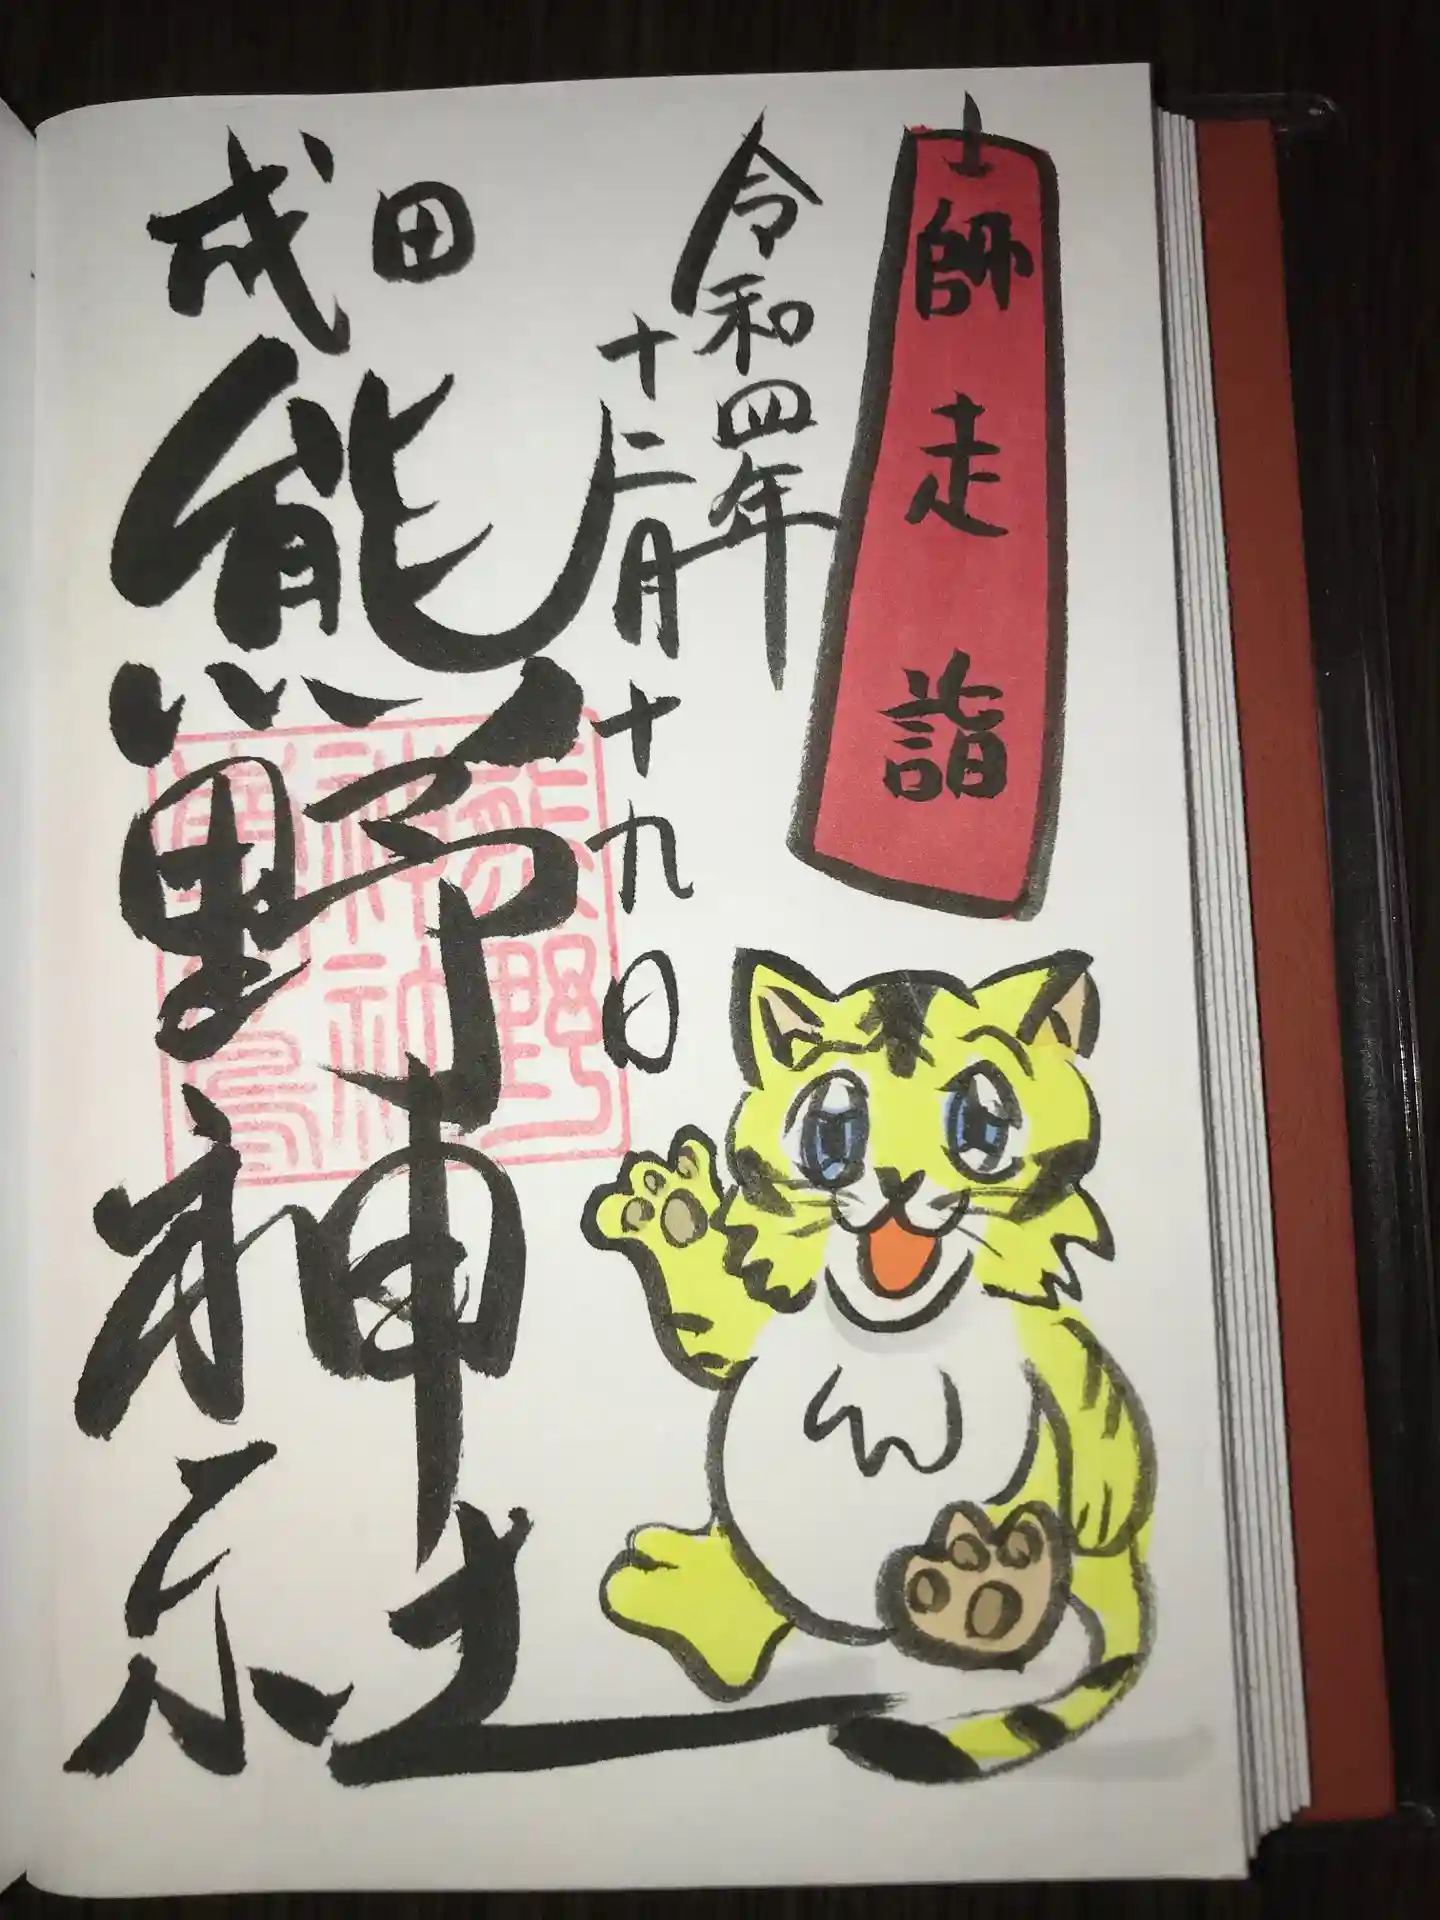 師走詣
令和四年
十二月十九日
成田
熊野神社
熊野
神社